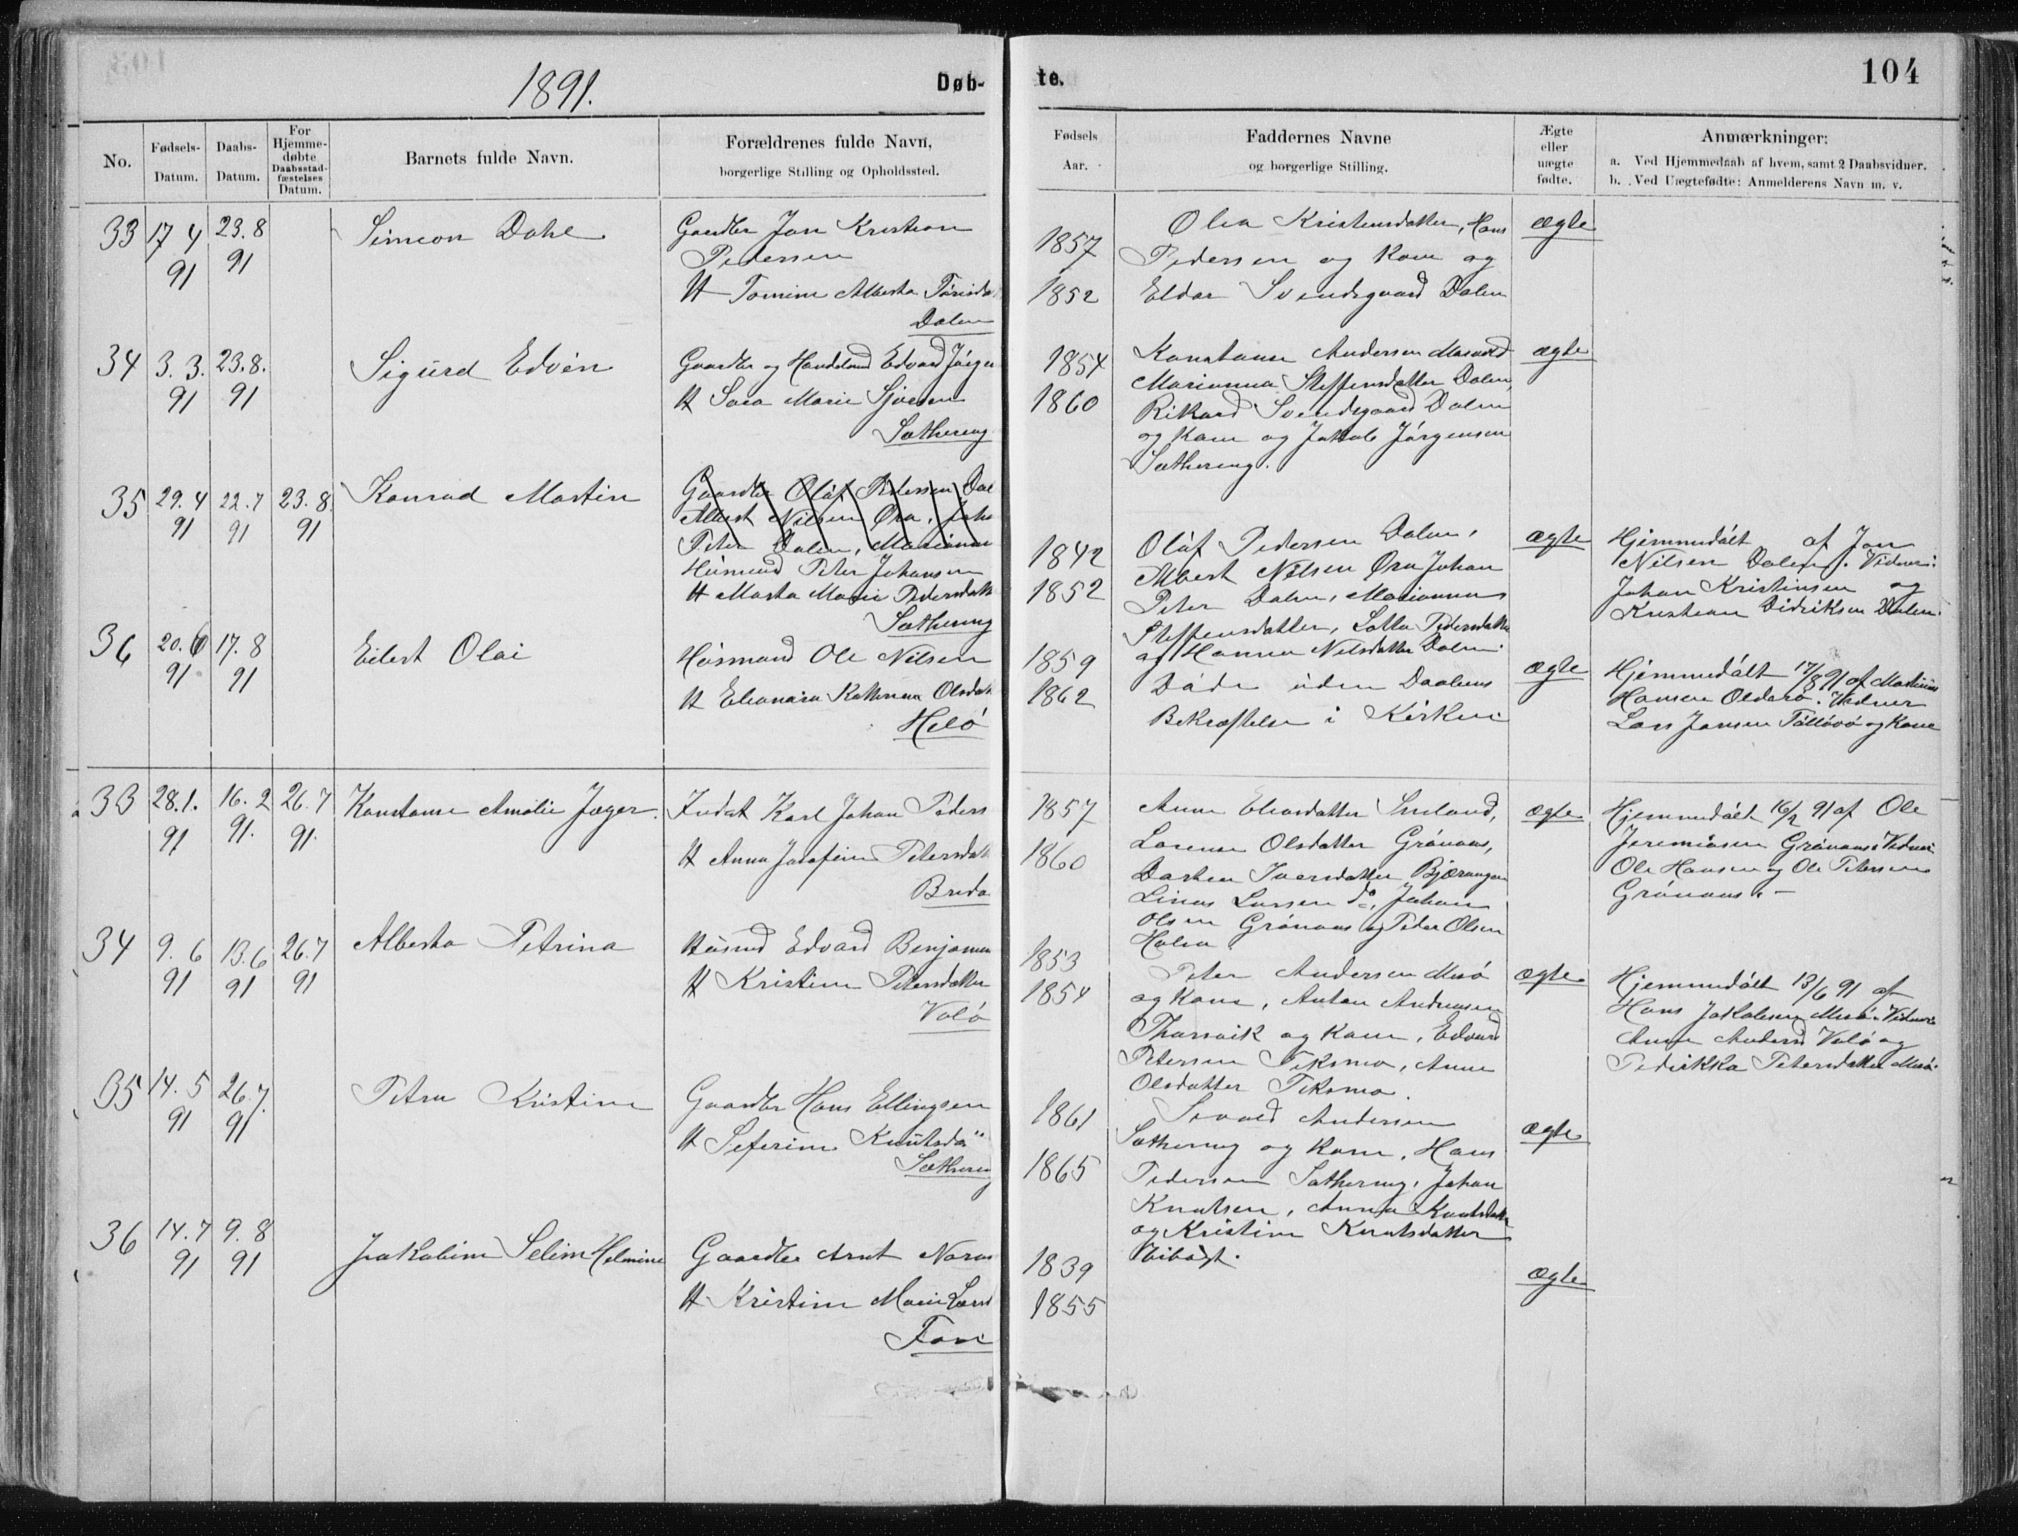 1891.
Døb-
te.
104
No.
Fødsels-
Datum.
Daabs-
Datum.
For
Hjemme-
døbte
Daabsstad-
fæstelses
Datum.
Barnets fulde Navn.
Forældrenes fulde Navn,
borgerlige Stilling og Opholdssted.
Fødsels
Aar.
Faddernes Navne
og borgerlige Stilling.
Ægte
eller
uægte
fødte.
Anmærkninger:
a. Ved Hjemmedaab af hvem, samt 2 Daabsvidner.
b. Ved Uægtefødte: Anmelderens Navn m. v.
33
17 4
91
23.8
91
Simeon Dahl
Gaardbr Jon Kristian
Pedersen
H Tomine Alberta
Dalen
1857
1852
Olea Kristensdatter, Hans
Pedersen og Kone og
Eldar Svendsgaard Dalen
ægte
34
3.3.
91
23.8.
91
Sigurd Edvin
Gaardbr og Handelsmd Edvard Jörgen
H Sara Marie
Sæthereng
1854
1860
Konstanse Andersen
Marianna Steffensdatter Dalen,
Rikard Svendsgaard Dalen
og Kone og Jakob Jörgensen
Sæthereng.
ægte
35
29.4
91
22.7
91
23.8.
91
Konrad Martin
Gaardbr Olaf Pedersen Dal
Albert Nilsen Øra, Joha
Peter Dalen, Marianna
Húsmand Peter Johansen
H Marta Marie Pedersdatt
Sæthereng
1842
1852
Olaf Pedersen Dalen,
Albert Nilsen Øra Johan
Peter Dalen, Marianna
Steffensdatter, Lotta Pedersdatter
og Hanna Nilsdatter Dalen.
ægte
Hjemmedöbt af Jon
Nilsen Dalen. Vidner:
Johan Kristensen og
Kristian Didriksen Dalen.
36
20.6
91.
17.8
91
Eilert Olai
Húsmand Ole Nilsen
H Eleonora Katrina Olsdatt
Helö
1859
1862
Döde uden Daabens
Bekræftelse i Kirken
ægte
Hjemmedöbt 17/8 91 af Martinus
Hansen Olderö. Vidner
Lars Jansen og Kone
33
28.1.
91
16.2
91.
26.7
91.
Konstanse Amalie Jæger.
Inderst Karl Johan Peders
H Anna Josefine Petersdatt
Breda
1857
1860
Anne Eliasdatter
Lorense Olsdatter Grönaas,
Iversdatter Bjærangen
Linus Larsen do, Johan
Olsen Grönaas og Peter Olsen
ægte
Hjemmedöbt 16/2 91 af Ole
Jeremiasen Grönaas. Vidner
Ole Hansen og Ole Petersen
Grönaas.
34
9.6
91
13.6
91
26.7
91
Alberta Petrina
Húsmd Edvard Benjamin
H Kristine Petersdatter
Valö
1853
1854
Peter Andersen Mesö
og Kone, Anton Andreasen
Thorsvik og Kone, Edvard
Petersen Teksmo, Anne
Olsdatter Teksmo.
ægte
Hjemmedöbt 13/6 91 af
Hans Jakobsen Mesö. Vidner:
Anne Andersd Valö og
Fredrikka Petersdatter Mesö.
35
14.5
91
26.7.
91
Petra Kristine
Gaardbr Hans Ellingsen
H Seferine Knutsda"
Sæthereng
1861
1865
Sivald Andersen
Sæthereng og Kone, Hans
Pedersen Sæthereng, Johan
Knutsen, Anna Knutsdatter
og Kristine Knutsdatter
ægte
36
14.7
91
9.8
91
Jakobine Seline Helmine
Gaardbr Arnt
H Kristine Marie
Fore
1839
1855
ægte